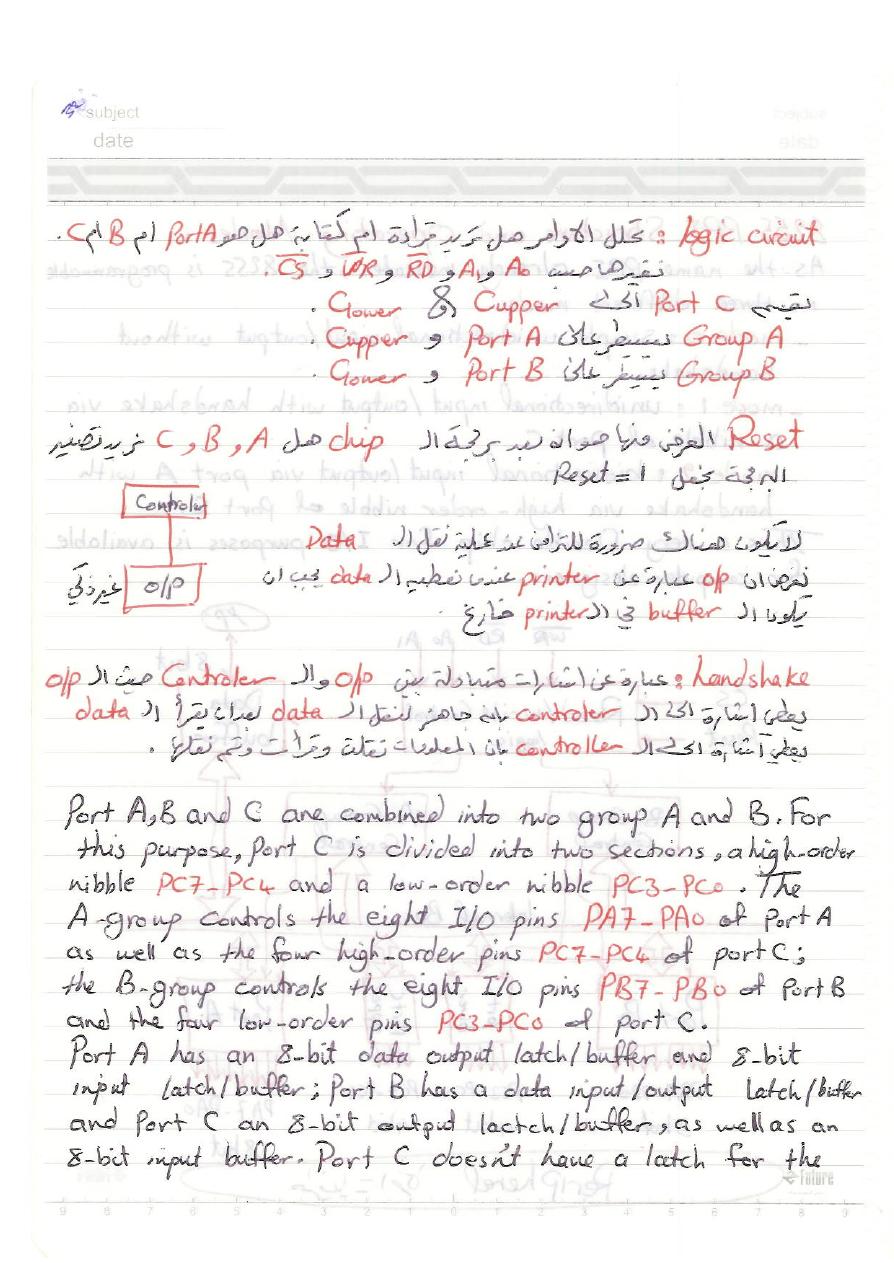 subject
date
logic circuit : تحلل الاوامر هل نريد قراءة ام كتابة هل هو Port A ام B ام C .
نقررها حسب A0 و A1 و RD و WR و CS .
تقسيم Port C الى Cupper & Clower .
Group A يسيطر على Port A و Cupper .
Group B يسيطر على Port B و Clower .
Reset الغرض منها هو انه بعد برمجة الـ chip هل A , B , C نريد تصفير
البرمجة نجعل Reset = 1
Controler
لا يكون هناك ضرورة للتزامن عند عملية نقل الـ Data
نفرض ان o/p عبارة عن printer عندما نعطيه الـ data يجب ان
O/P غير ذكي
يكون الـ buffer في الـ printer فارغ .
handshake : عبارة عن اشارات متبادلة بين o/p والـ Controler حيث الـ o/p
يعطي اشارة الى الـ controler بانه جاهز لنقل الـ data بعد ان يقرأ الـ data
يعطي اشارة الى الـ controller بان المعلومات نقلت وقرأت وتم نقلها .
Port A,B and C are combined into two group A and B. For
this purpose, Port C is divided into two sections, a high-order
nibble PC7-PC4 and a low-order nibble PC3-PC0 . The
A-group controls the eight I/O pins PA7-PA0 of Port A
as well as the four high-order pins PC7-PC4 of port C;
the B-group controls the eight I/O pins PB7-PB0 of Port B
and the four low-order pins PC3-PC0 of port C.
Port A has an 8-bit data output latch/buffer and 8-bit
input latch/buffer; Port B has a data input/output latch/buffer
and Port C an 8-bit output lactch/buffer, as well as an
8-bit input buffer. Port C doesn't have a latch for the
Future
9 8 7 6 5 4 3 2 1 0 1 2 3 4 5 6 7 8 9